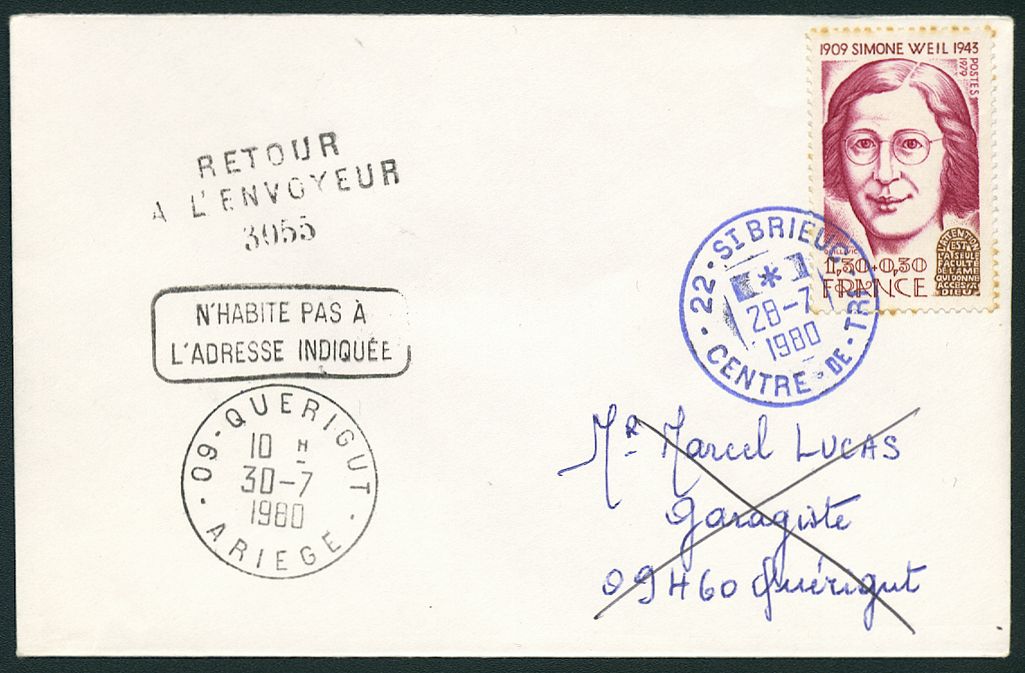 RETOUR
A L'ENVOYEUR
3055
N'HABITE PAS À
L'ADRESSE INDIQUÉE
09-QUERIGUT
10 H
30-7
1980
ARIEGE
1909 SIMONE WEIL 1943
POSTES
1979
L'ATTENTION
EST
LA SEULE
FACULTÉ
DE L'AME
QUI DONNE
ACCES À
DIEU
1,30+0,30
FRANCE
22-ST BRIEUC
*
28-7
1980
CENTRE-DE-TRI
Mr Marcel LUCAS
Garagiste
09460 Quérigut